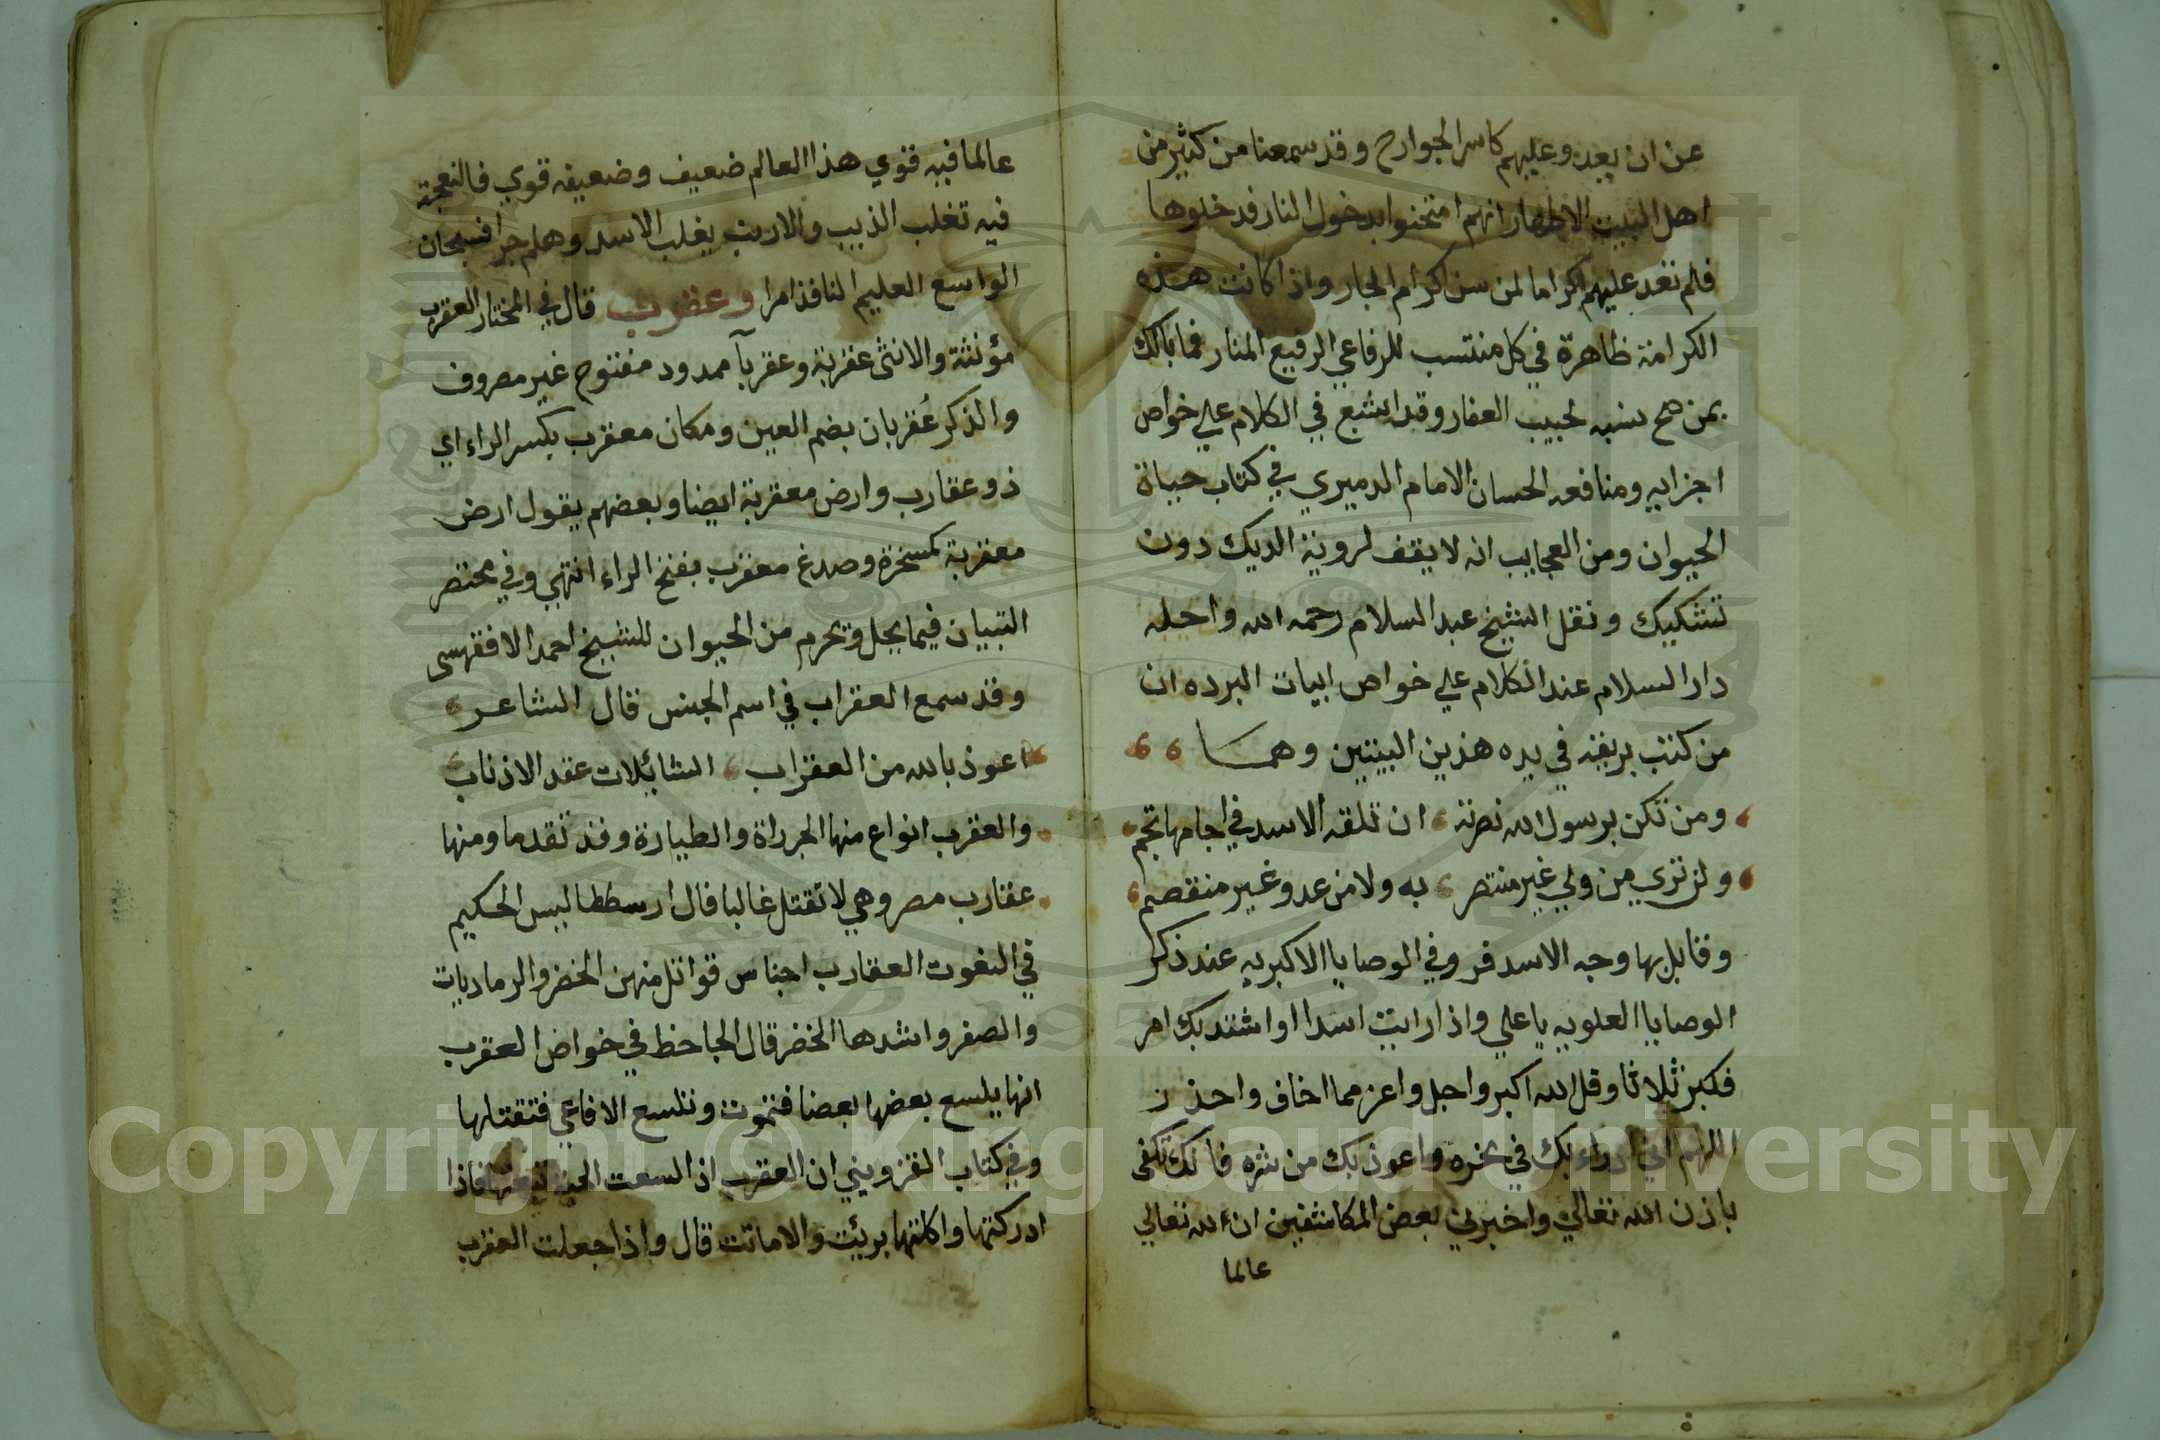 عن ان يعدو عليهم كاسر الجوارح وقد سمعنا من كثير من
اهل البيت الاطهار انهم امتحنوا بدخول النار فدخلوها
فلم تعد عليهم اكراما لمن سن اكرام الجار واذا كانت هذه
الكرامة ظاهرة في كل منتسب للرفاعي الرفيع المنار فما بالك
بمن صح نسبه لحبيب الغفار وقد اشبع في الكلام علي خواص
اجزايه ومنافعه الحسان الامام الدميري في كتاب حياة
الحيوان ومن العجايب انه لا يقف لروية الديك دون
تشكيك ونقل الشيخ عبد السلام رحمه الله واحله
دار السلام عند الكلام علي خواص ابيات البرده ان
من كتب بريقه في يده هذين البيتين وهمــا
ومن تكن برسول الله نصرته ان تلقه الاسد في اجامها تجم
ولن تري من ولي غير منتصر به ولا من عدو غير منقصم
وقابل بها وجه الاسد فر وفي الوصايا الاكبريه عند ذكر
الوصايا العلويه يا علي واذا رايت اسدا او اشتد بك امر
فكبر ثلاثا وقل الله اكبر واجل واعز مما اخاف واحذر
اللهم اني ادراء بك في نحره واعوذ بك من شره فانك تكفى
باذن الله تعالي واخبرني بعض المكاشفين ان الله تعالي
عالما
عالما فيه قوي هذا العالم ضعيف وضعيفه قوي فالنعجة
فيه تغلب الذيب والارنب يغلب الاسد وهلم جرا فسبحان
الواسع العليم النافذ امرا وعقرب قال في المختار العقرب
مؤنثة والانثى عقربة وعقربآ ممدود مفتوح غير مصروف
والذكر عُقربان بضم العين ومكان معقرب بكسر الراء اي
ذو عقارب وارض معقربة ايضا وبعضهم يقول ارض
معقربة كمسخرة وصدغ معقرب بفتح الراء انتهي وفي مختصر
التبيان فيما يحل ويحرم من الحيوان للشيخ احمد الاقفهسي
وقد سمع العقراب في اسم الجنس قال الشاعر
اعوذ بالله من العقراب الشائلات عقد الاذناب
والعقرب انواع منها الجراراة والطيارة وقد تقدما ومنها
عقارب مصر وهي لا تقتل غالبا قال ارسططاليس الحكيم
في النعوت العقارب اجناس قواتل منهن الخضر والرماديات
والصفر واشدها الخضر قال الجاحظ في خواص العقرب
انها يلسع بعضها بعضا فتموت وتلسع الافاعي فتقتلها
وفي كتاب القزويني ان العقرب اذا لسعت الحيه تبعتها فاذا
ادركتها واكلتها برئت والا ماتت قال واذا جعلت العقرب
Copyright © King Saud University